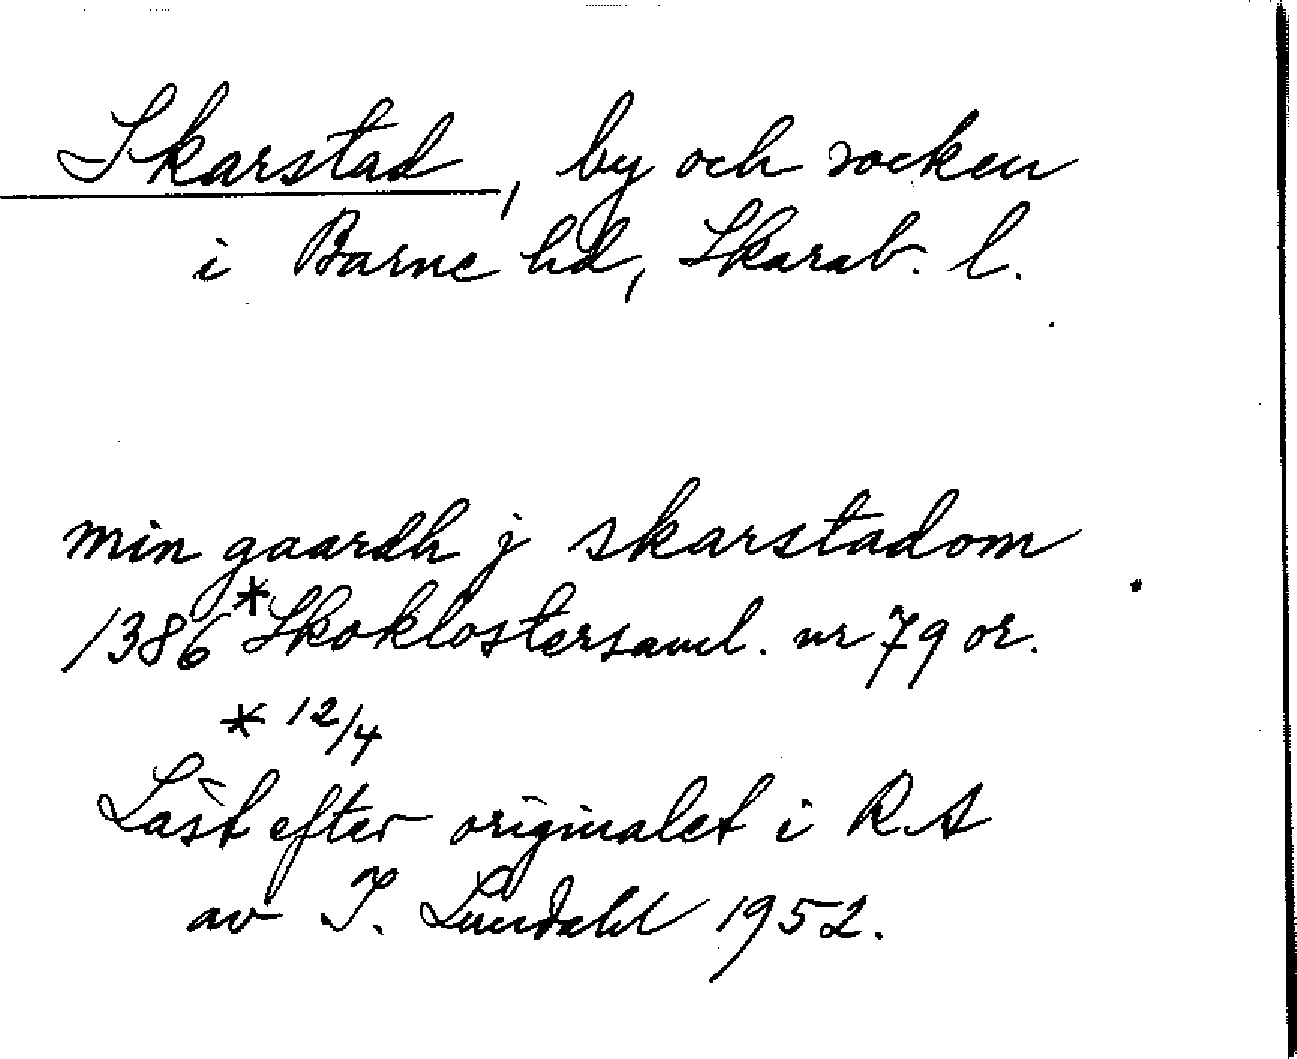 Skarstad, by och socken
i Barne hd, Skarab. l.
min gaardh j skarstadom
1386* Skoklostersaml. nr 79 or.
* 12/4
Läst efter originalet i RA
av I. Lundahl 1952.